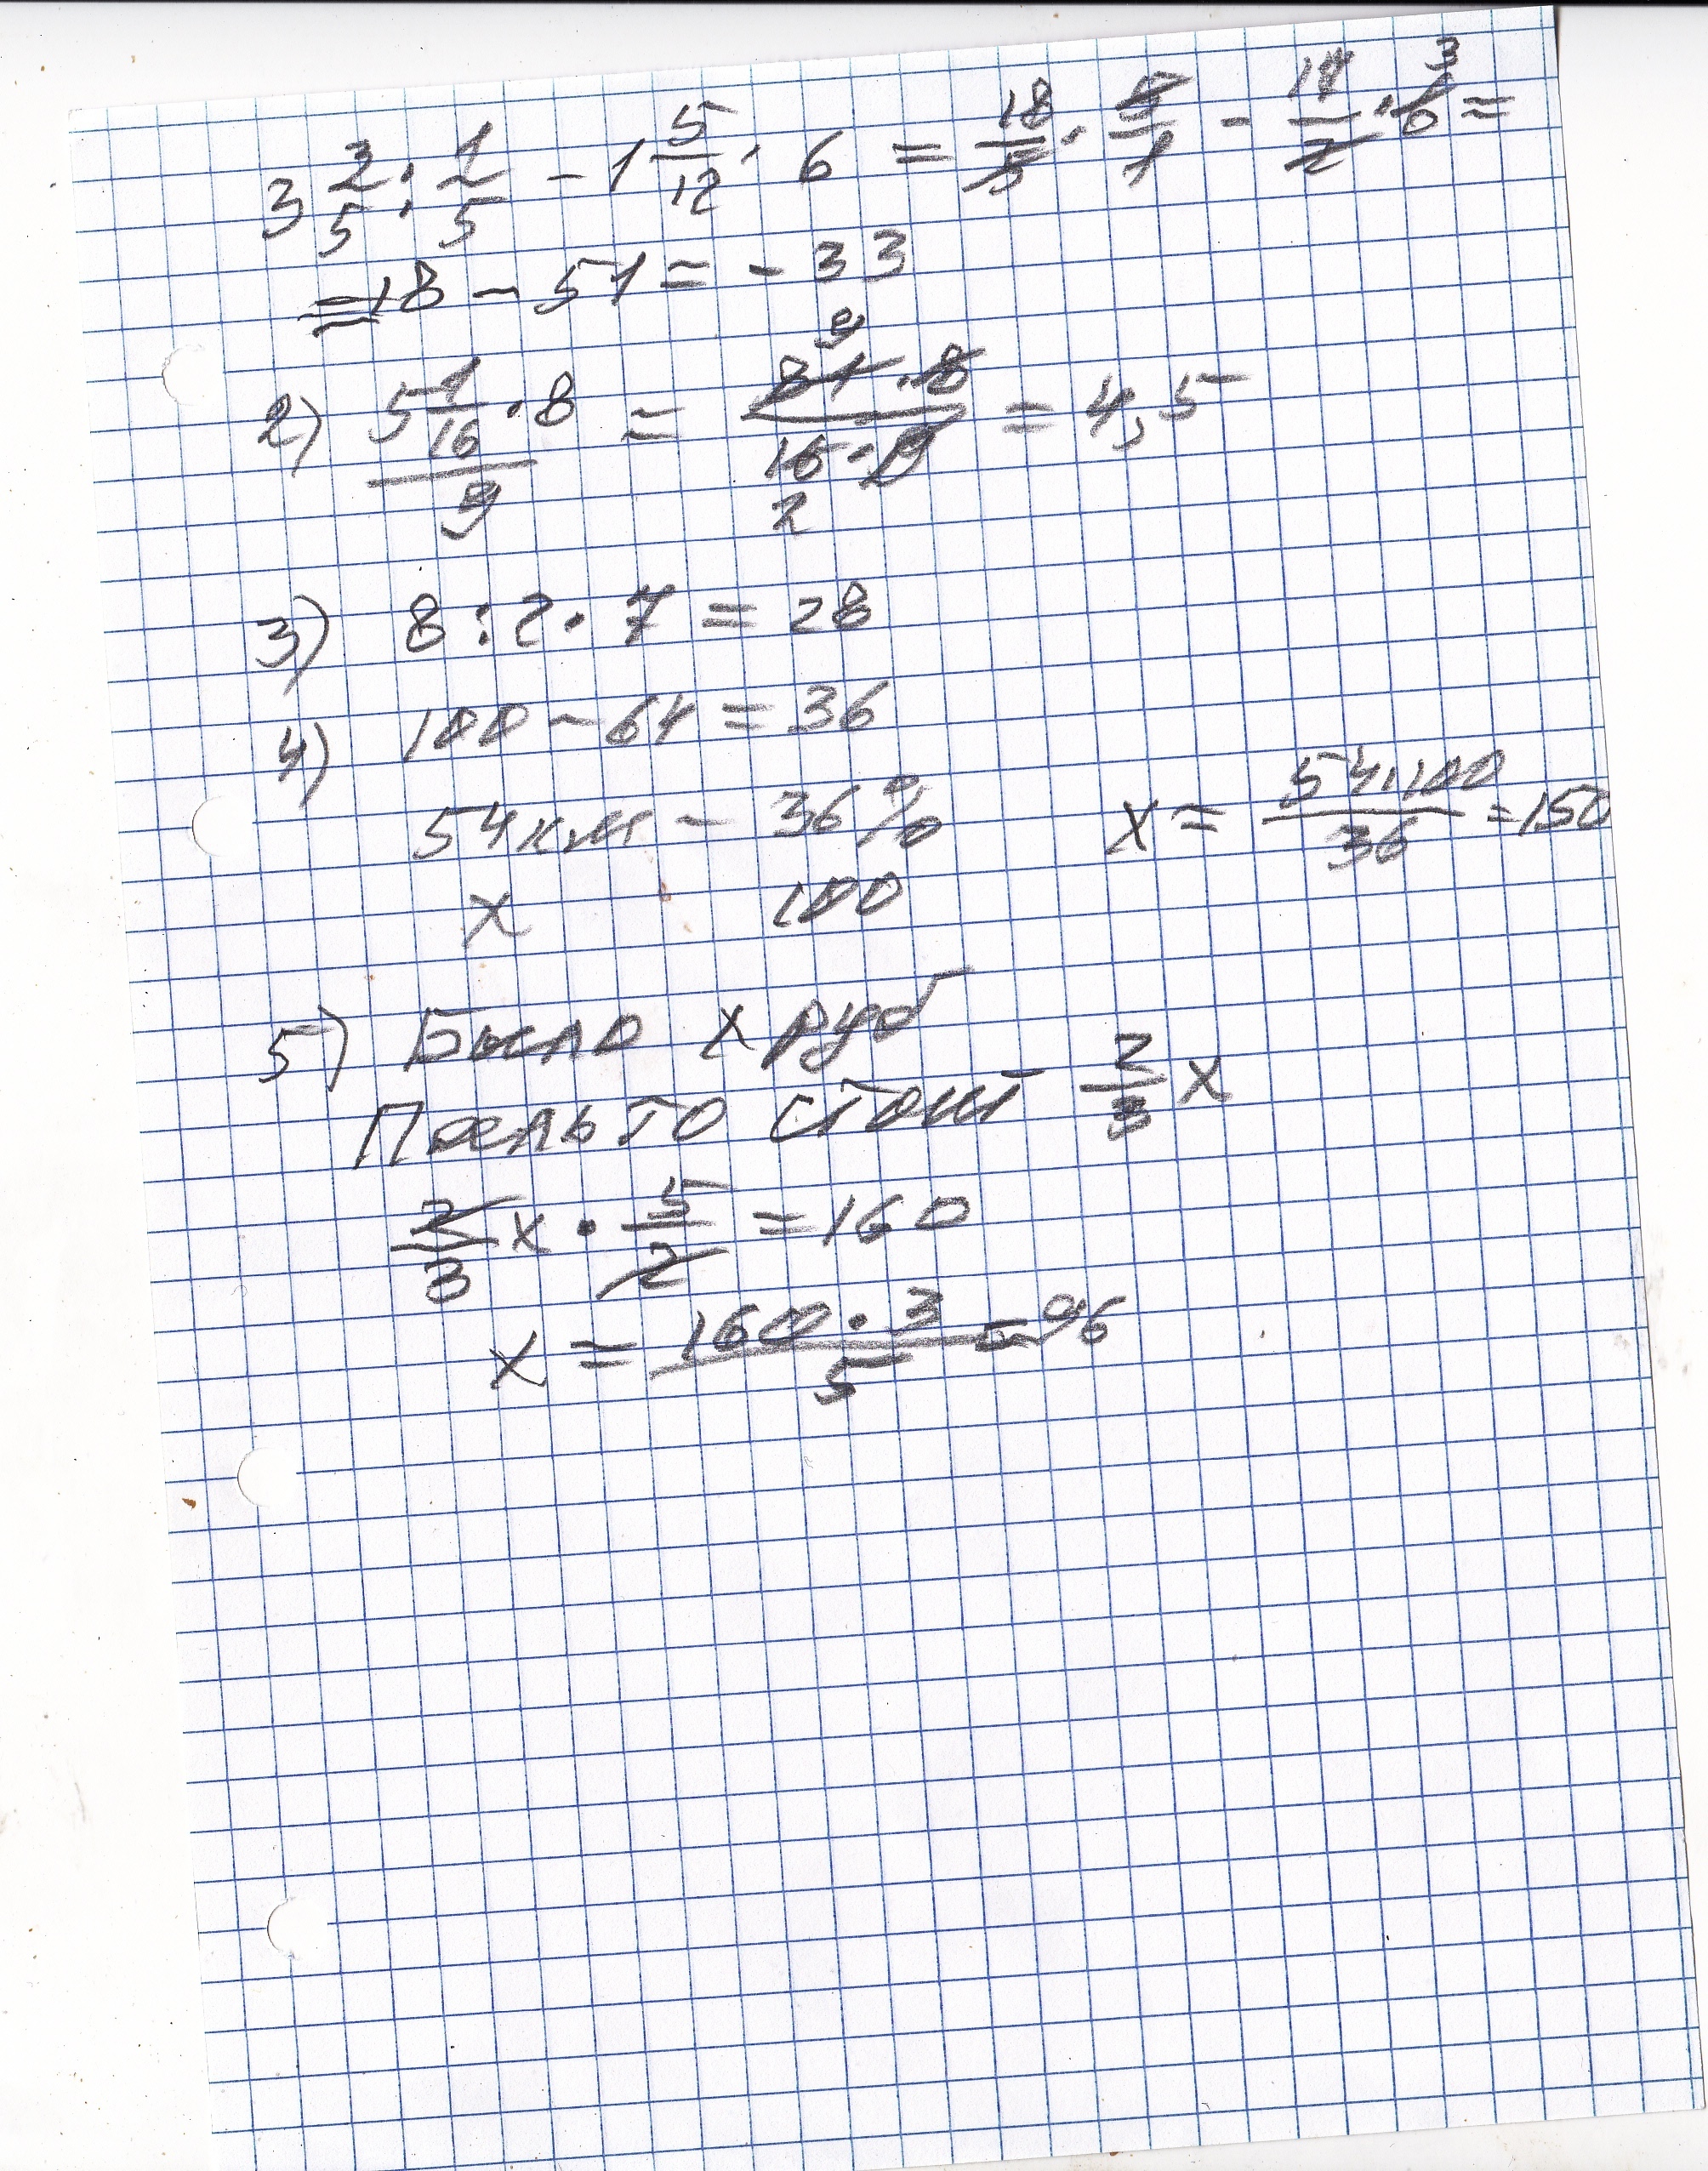 3 2/5 : 1/5 - 1 5/12 · 6 = 18/5 · 5/1 - 17/2 · 6 3 =
= 18 - 51 = - 33
2) 5 1/16 · 8 / 9 = 9 81 · 8 / 16 · 9 2 = 4,5
3) 8 : 2 · 7 = 28
4) 100 - 64 = 36
54 км - 36% x = 54·100/36 = 150
x 100
5) Было x руб
Пальто стоит 2/3 x
2/3 x · 5/2 = 160
x = 160 · 3 / 5 = 96